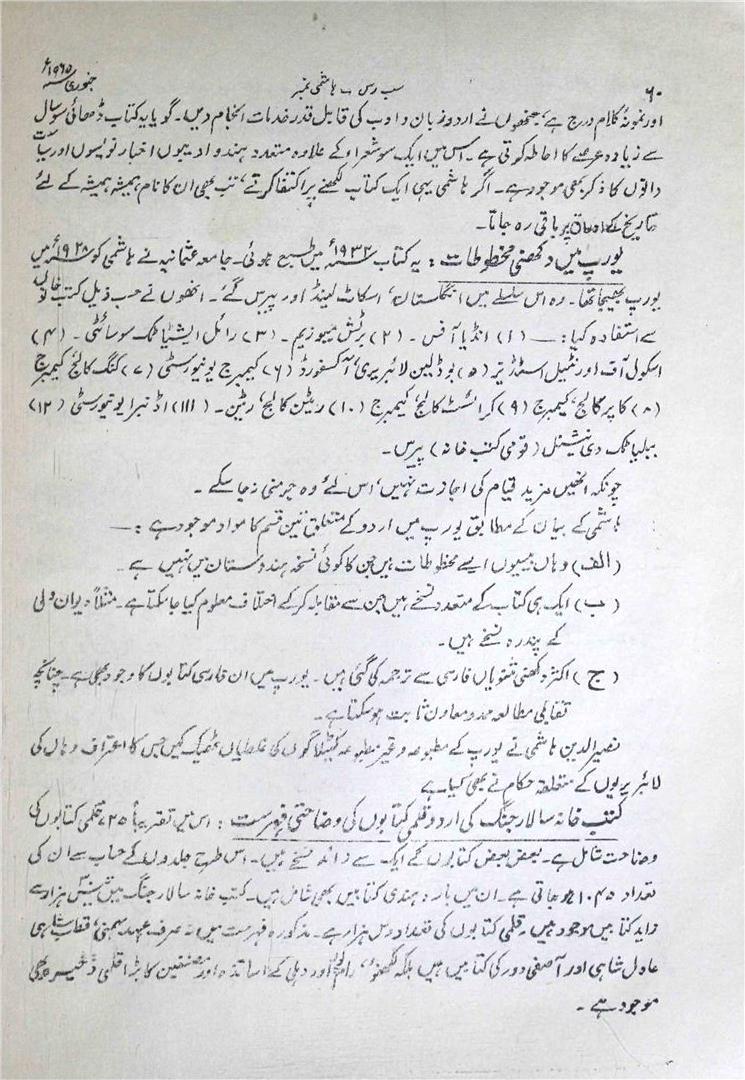 ۶۰ سب رس ۔ ہاشمی نمبر جنوری ۱۹۶۵ء
اور نمونۂ کلام درج ہے، جنھوں نے اردو زبان و ادب کی قابل قدر خدمات انجام دیں۔ گویا یہ کتاب ڈھائی سو سال
سے زیادہ عرصے کا احاطہ کرتی ہے۔ اس میں ایک سو شعراء کے علاوہ متعدد ہندو ادیبوں اخبار نویسوں اور سیاست
دانوں کا ذکر بھی موجود ہے۔ اگر ہاشمی یہی ایک کتاب لکھنے پر اکتفا کرتے، تب بھی ان کا نام ہمیشہ ہمیشہ کے لئے
تاریخ کے اوراق پر باقی رہ جاتا۔
یورپ میں دکھنی مخطوطات : یہ کتاب ۱۹۳۲ء میں طبع ہوئی۔ جامعہ عثمانیہ نے ہاشمی کو ۱۹۲۸ء میں
یورپ بھیجا تھا۔ وہ اس سلسلے میں انگلستان، اسکاٹ لینڈ اور پیرس گئے۔ انھوں نے حسب ذیل کتب خانوں
سے استفادہ کیا: — (۱) انڈیا آفس۔ (۲) برٹش میوزیم۔ (۳) رائل ایشیاٹک سوسائٹی۔ (۴)
اسکول آف اورنٹیل اسٹڈیز (۵) بوڈلین لائبریری، آکسفورڈ (۶) کیمبرج یونیورسٹی (۷) کنگ کالج کیمبرج
(۸) کاپر کالج، کیمبرج (۹) کرائسٹ کالج، کیمبرج (۱۰) ریٹن کالج، ریٹن۔ (۱۱۱) اڈنبرا یونیورسٹی (۱۲)
ببلیاٹک دی نیشنل (قومی کتب خانہ) پیرس۔
چونکہ انھیں مزید قیام کی اجازت نہیں، اس لئے وہ جرمنی نہ جا سکے۔
ہاشمی کے بیان کے مطابق یورپ میں اردو کے متعلق تین قسم کا مواد موجود ہے : —
(الف) وہاں بیسیوں ایسے مخطوطات ہیں جن کا کوئی نسخہ ہندوستان میں نہیں ہے۔
(ب) ایک ہی کتاب کے متعدد نسخے ہیں جن سے مقابلہ کرکے اختلاف معلوم کیا جا سکتا ہے۔ مثلاً دیوان ولی
کے پندرہ نسخے ہیں۔
(ج) اکثر دکھنی مثنویاں فارسی سے ترجمہ کی گئی ہیں۔ یورپ میں ان فارسی کتابوں کا وجود بھی ہے۔ چنانچہ
تقابلی مطالعہ ممد و معاون ثابت ہو سکتا ہے۔
نصیر الدین ہاشمی نے یورپ کے مطبوعہ و غیر مطبوعہ کیٹلاگوں کی غلطیاں ٹھیک کیں جس کا اعتراف وہاں کی
لائبریریوں کے متعلقہ حکام نے بھی کیا ہے
کتب خانہ سالار جنگ کی اردو قلمی کتابوں کی وضاحتی فہرست : اس میں تقریباً ۷۲۵ قلمی کتابوں کی
وضاحت شامل ہے۔ بعض بعض کتابوں کے ایک سے زائد نسخے ہیں۔ اس طرح جلدوں کے حساب سے ان کی
تعداد ۱۰۴۵ ہو جاتی ہے۔ ان میں بارہ ہندی کتابیں بھی شامل ہیں۔ کتب خانہ سالار جنگ میں ہزار سے
زاید کتابیں موجود ہیں۔ قلمی کتابوں کی تعداد دس ہزار ہے۔ مذکورہ فہرست میں نہ صرف عہد بہمنی، قطب شاہی
عادل شاہی اور آصفی دور کی کتابیں ہیں بلکہ لکھنؤ، رامپور اور دہلی کے اساتذہ اور مصنفین کا بڑا قلمی ذخیرہ بھی
موجود ہے۔